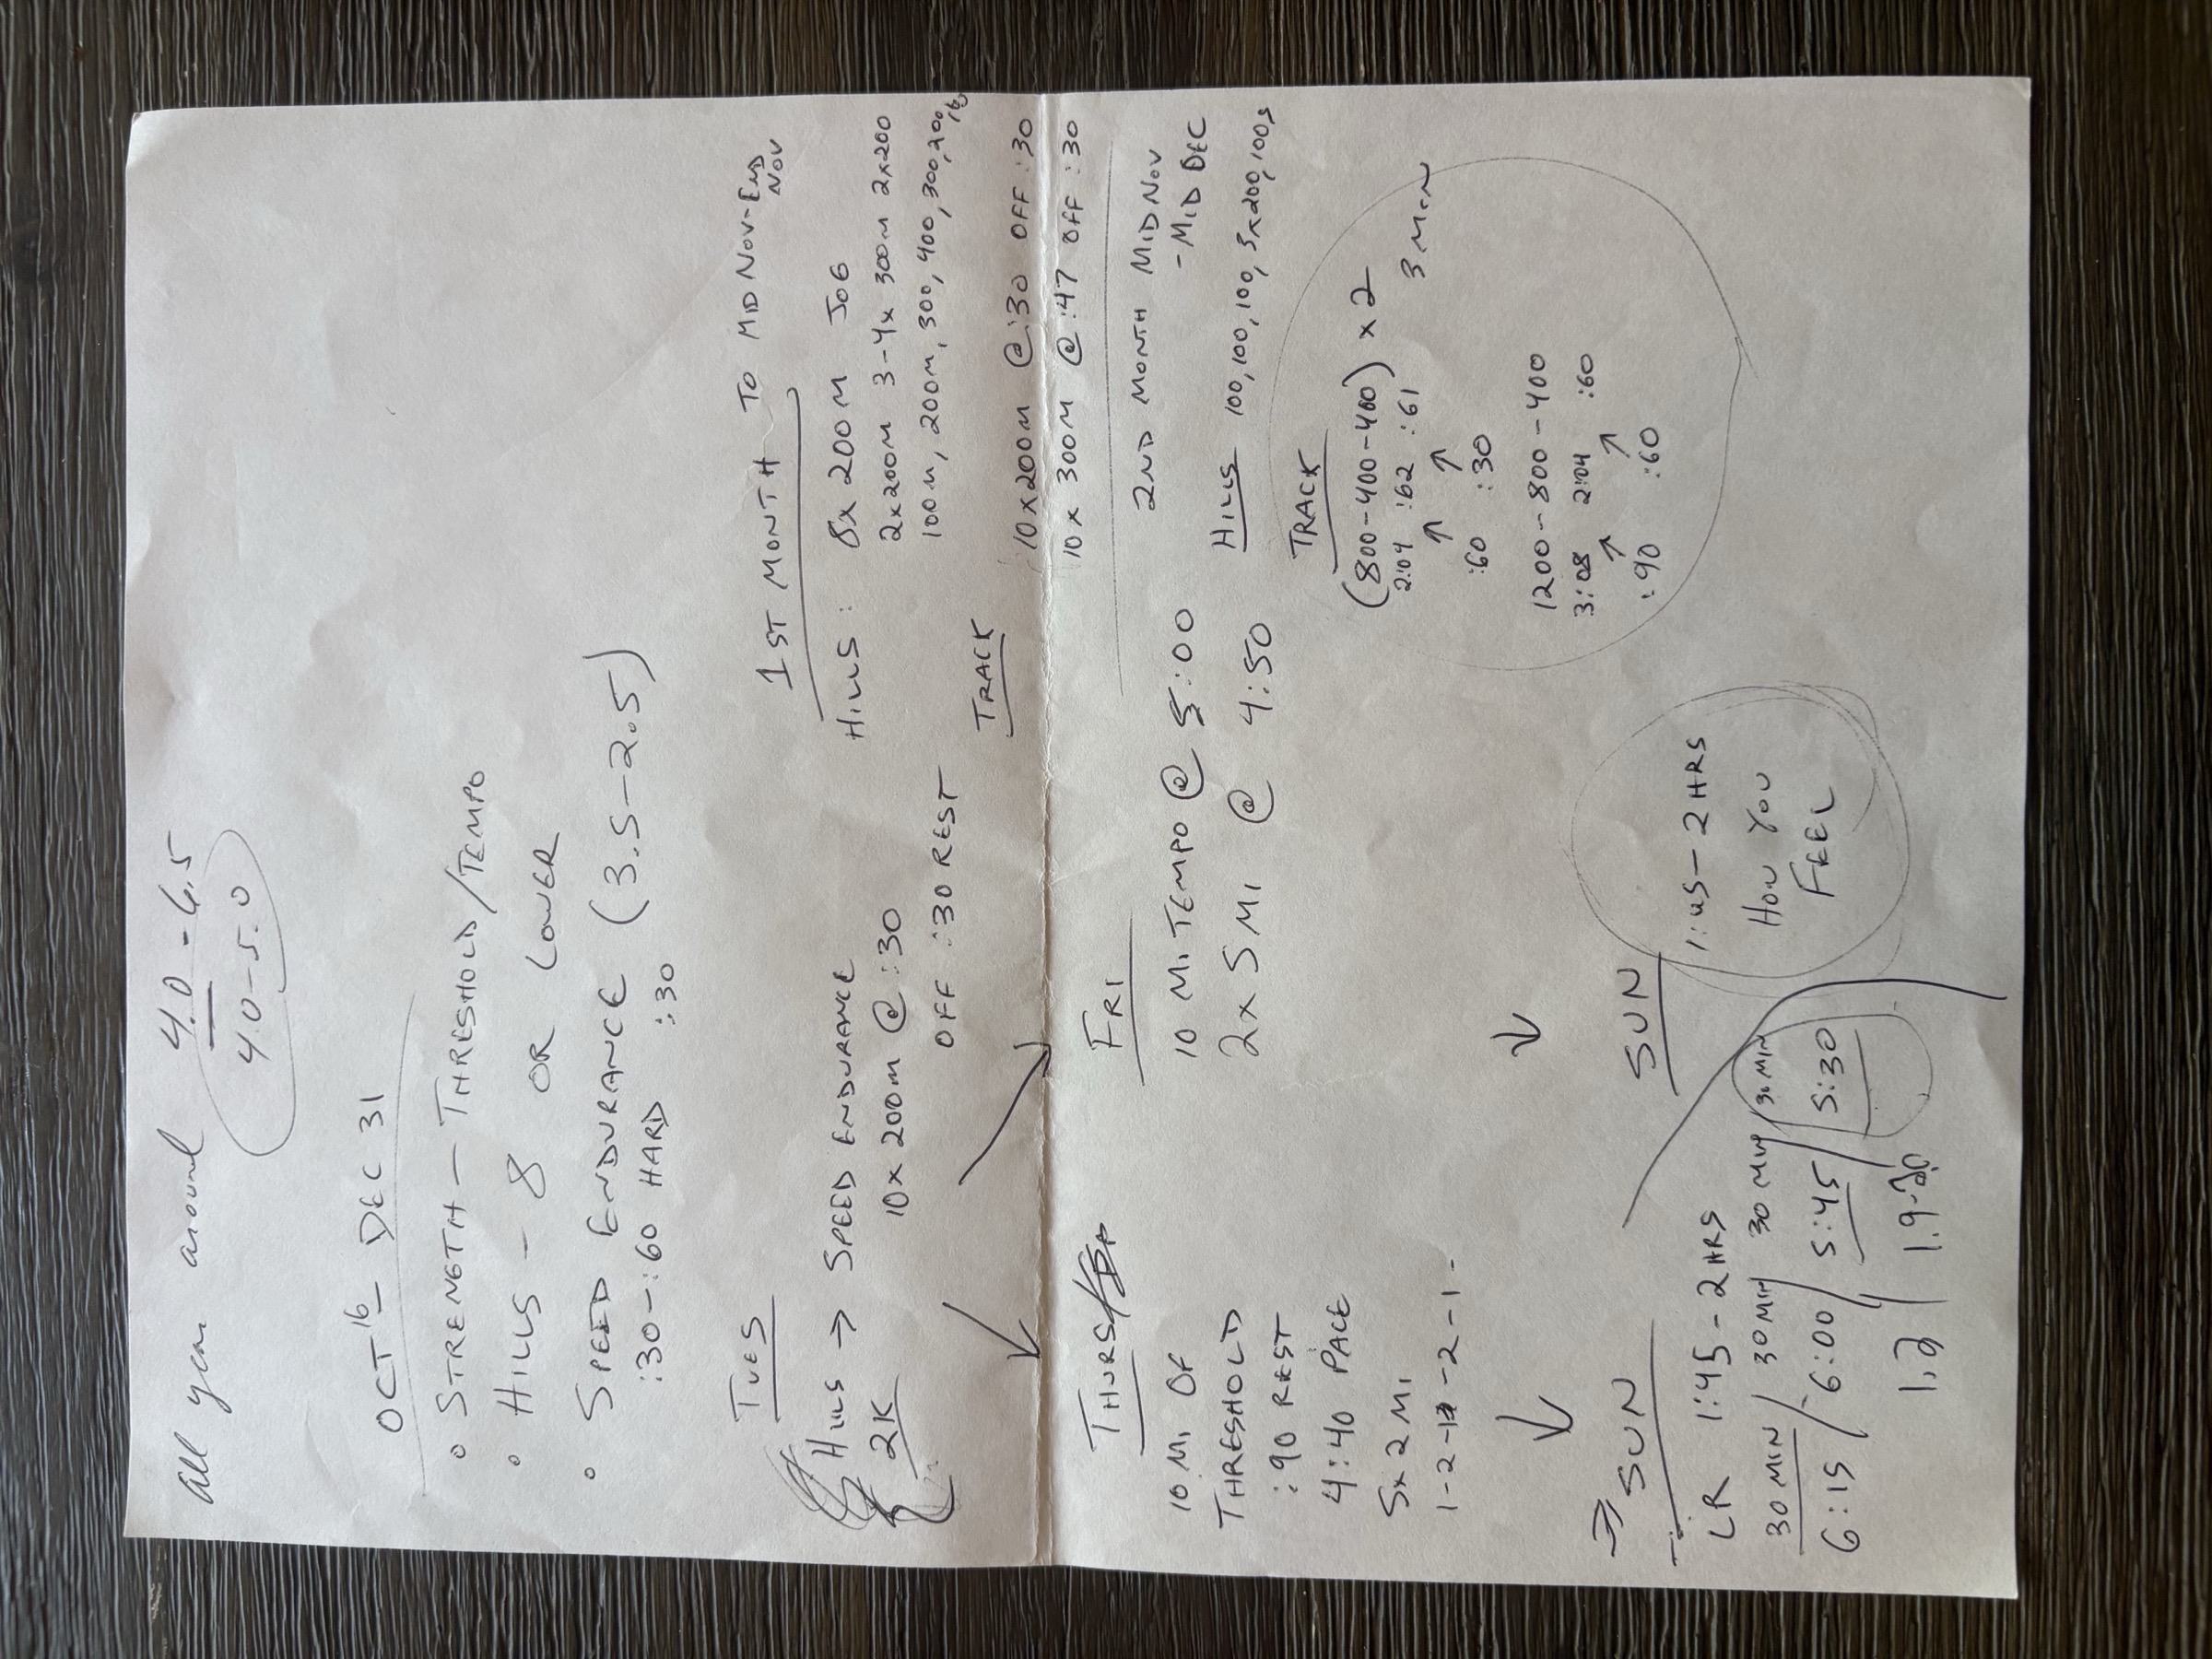 All year around 4.0 - 6.5
4.0 - 5.0
OCT 16 - DEC 31
° STRENGTH - THRESHOLD/TEMPO
° HILLS - 8 OR LOWER
° SPEED ENDURANCE (3.5-2.5)
:30-:60 HARD :30
TUES
HILLS → SPEED ENDURANCE
2K
10x200m @ :30
OFF :30 REST
1ST MONTH TO MID NOV-END NOV
HILLS: 8x 200M JOG
2x200m 3-4x 300m 2x200
100m, 200m, 300, 400, 300, 200,
TRACK
10x200m @ :30 OFF :30
10x 300m @ :47 OFF :30
THURS
10 MI OF
THRESHOLD
:90 REST
4:40 PACE
5x2 MI
1-2-1-2-1-
FRI
10 MI TEMPO @ 5:00
2x 5 MI @ 4:50
2ND MONTH MID NOV
- MID DEC
HILLS 100, 100, 100, 5x200, 100,s
TRACK
(800-400-400) x 2
2:04 :62 :61
3 MIN
↑ ↑
:60 :30
1200-800-400
3:08 2:04 :60
↑ ↑
:90 :60
→ SUN
LR 1:45 - 2 HRS
30 MIN / 30 MIN 30 MIN / 30 MIN
6:15 / 6:00 / 5:45 / 5:30
1.2 / 1.9-
SUN
1:45 - 2 HRS
HOW YOU
FEEL